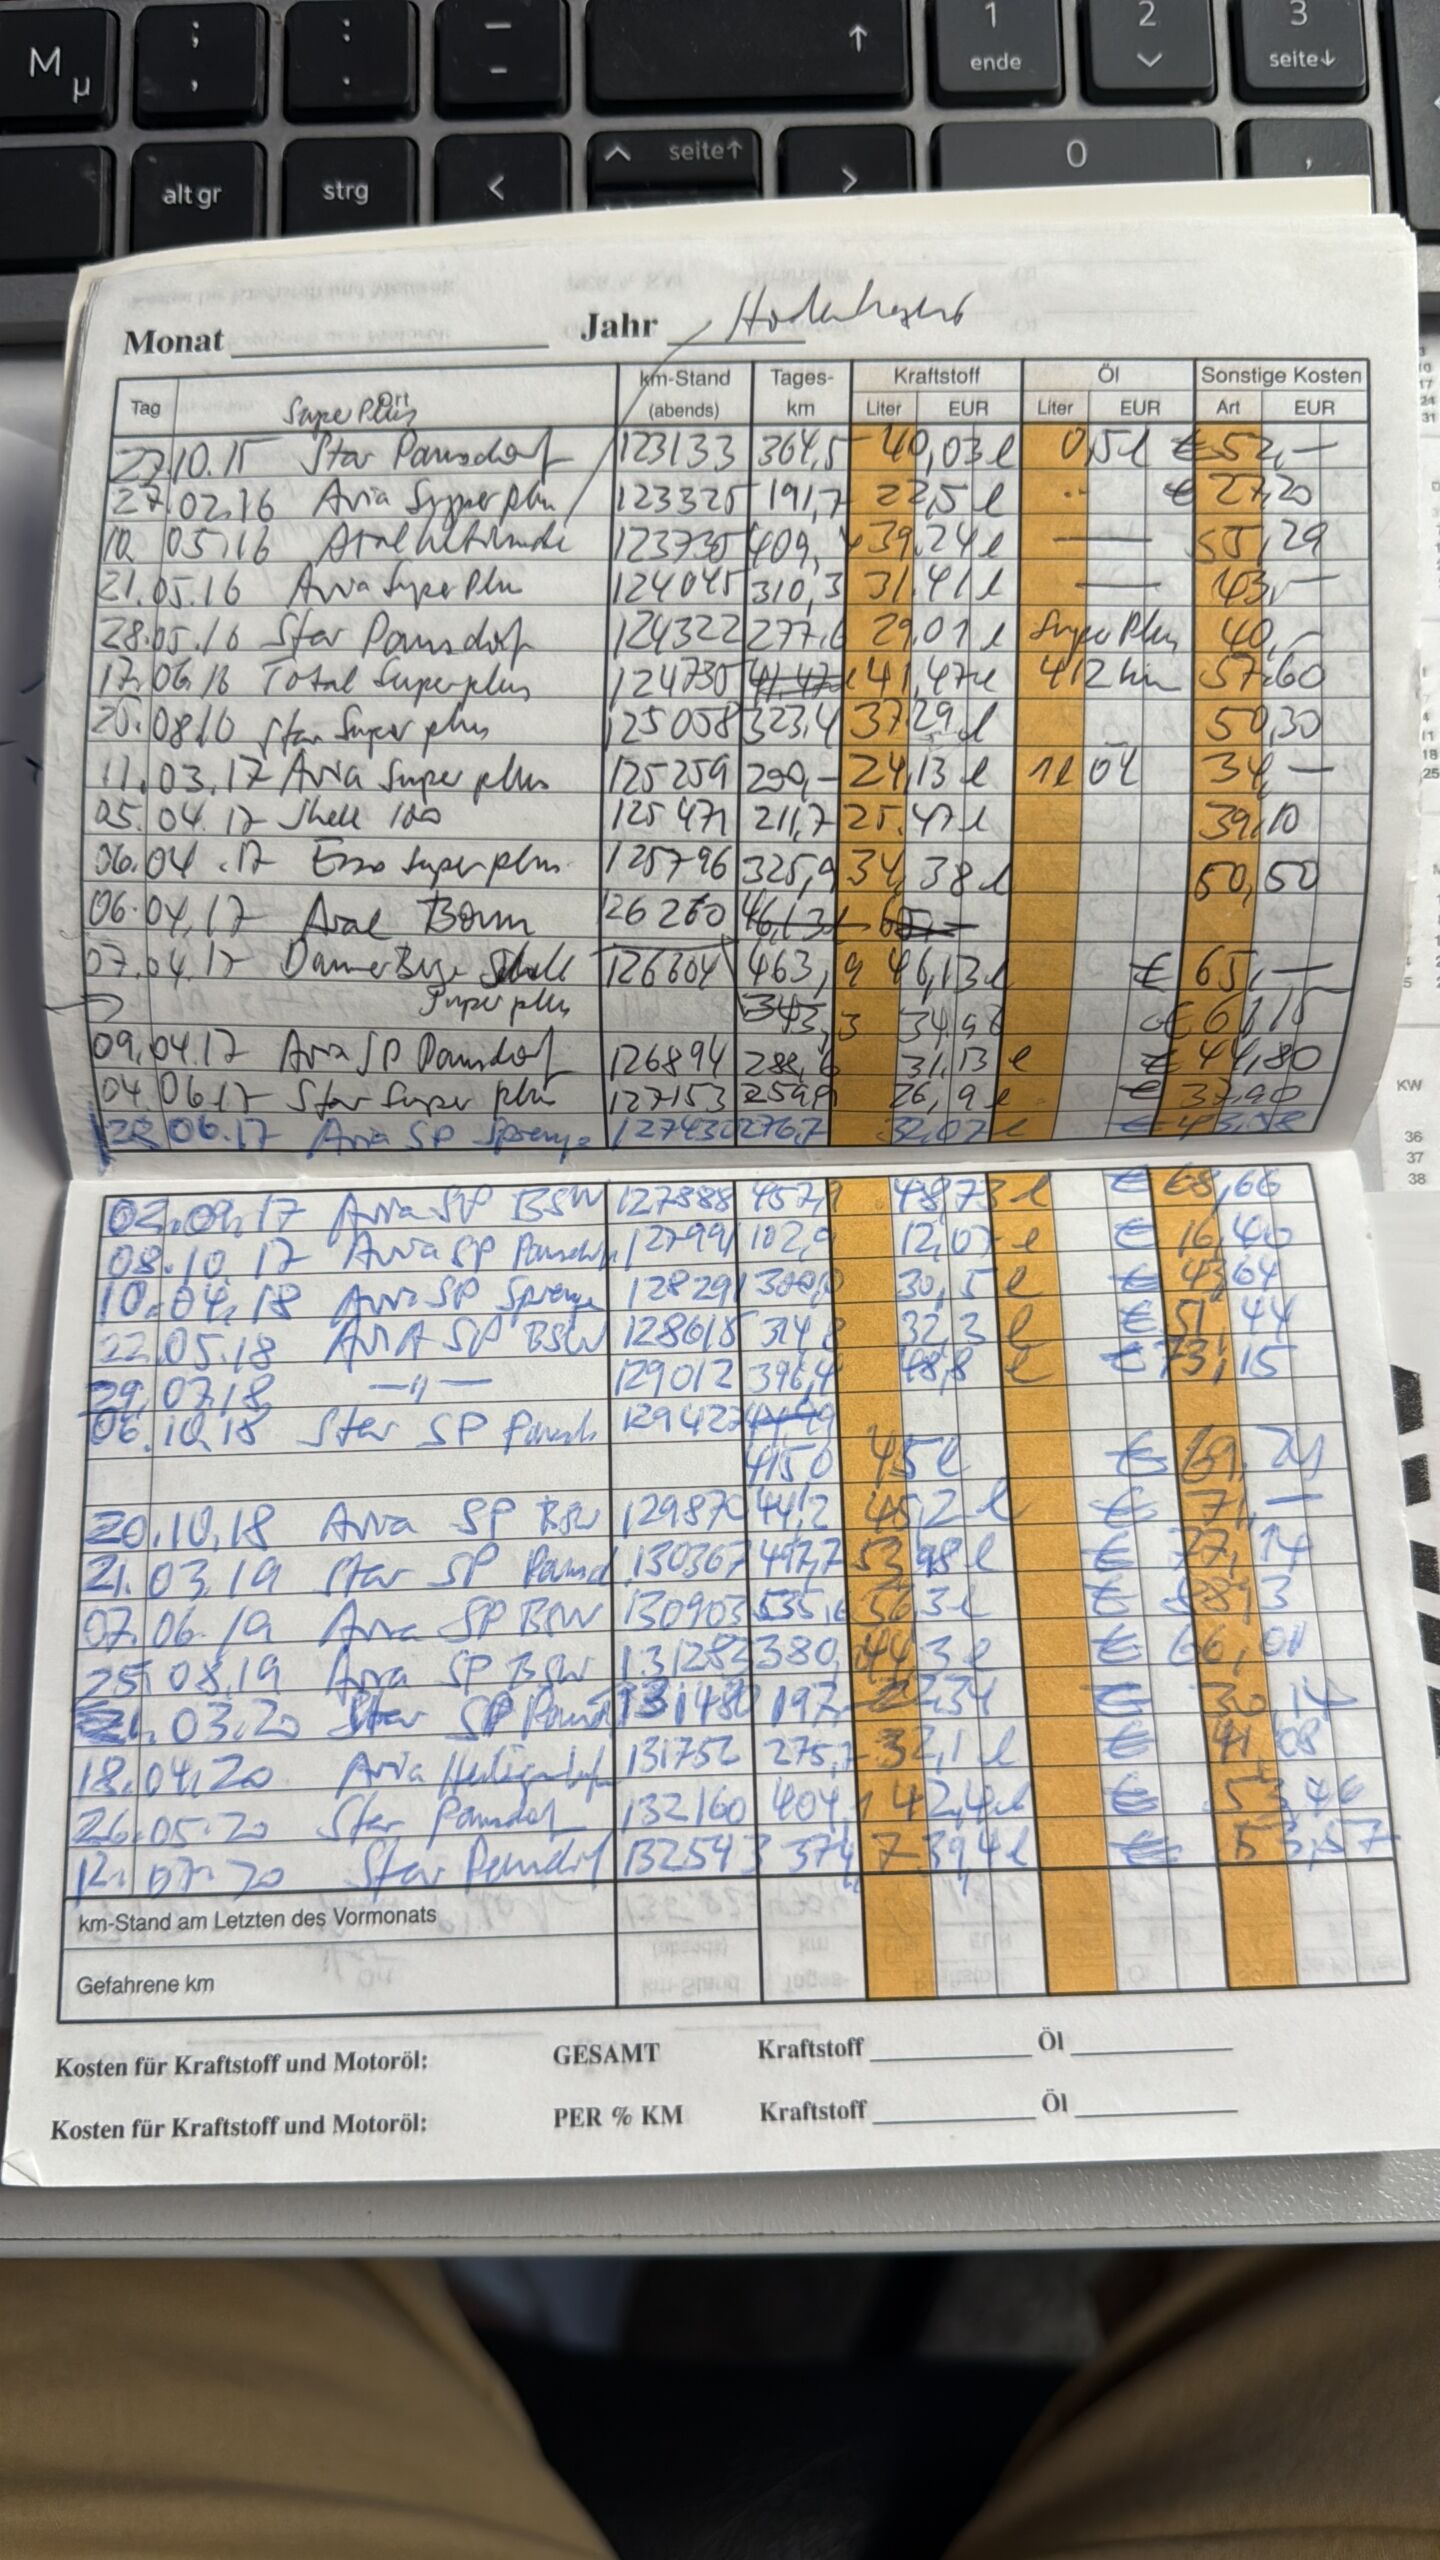 M µ ; , : . _ - ↑ 1 ende 2 3 seite↓
alt gr strg < seite↑ > 0 ,
Monat Jahr
Tag Ort km-Stand (abends) Tages-km Kraftstoff Öl Sonstige Kosten
Super Plus Liter EUR Liter EUR Art EUR
27.10.15 Star Paunsdorf 123133 364,5 40,03 l 0,5 l € 52,—
27.02.16 Avia Super plus 123325 191,7 22,5 l € 27,20
10.05.16 Aral 123735 409,4 39,24 l — 55,29
21.05.16 Avia Super Plus 124045 310,3 31.41 l — 43,—
28.05.16 Star Paunsdorf 124322 277,6 29,01 l Super Plus 40,—
17.06.16 Total Superplus 124730 41,47 l 412 km 57,60
20.08.16 Star Super plus 125058 323,4 37,29 l 50,30
11.03.17 Avia Super plus 125259 200,— 24,13 l 1 l Öl 34,—
05.04.17 Shell 100 125471 211,7 25.47 l 39,10
06.04.17 Esso Super plus 125796 325,9 34,38 l 50,50
06.04.17 Aral Bonn 126260
07.04.17 Shell 126604 463,9 46,13 l € 65,—
Super plus 343,3 € 61,15
09.04.17 Avia SP Paunsdorf 126894 288,6 31,13 l € 44,80
04.06.17 Star Super plus 127153 259,9 26,9 l € 37,90
06.17 Avia SP 127430 276,7 32,07 l €
02.09.17 Avia SP BSW 127888 457,9 48,73 l € 68,66
08.10.17 Avia SP 127991 102,9 12,07 l € 16,40
10.04.18 Avia SP 128291 300,0 30,5 l € 43,64
22.05.18 AVIA SP BSW 128615 32,3 l € 51,44
29.07.18 —"— 129012 396,4 48,8 l € 73,15
06.10.18 Star SP 129427
415,0 45 l € 69,21
20.10.18 Avia SP BSW 129870 441,2 45,2 l € 71,—
21.03.19 Star SP 130367 497,7 53,98 l € 77,14
07.06.19 Avia SP BSW 130903 535,6 56,3 l €
25.08.19 Avia SP BSW 131282 380, 44,3 l € 66,01
03.20 Star SP 131480 197, 22,34 € 30,14
18.04.20 Avia 131752 275,7 32,1 l € 41,08
26.05.20 Star Paunsdorf 132160 404,1 42,4 l € 53,46
12.07.20 Star Paunsdorf 132543 374,7 39,4 l € 53,57
km-Stand am Letzten des Vormonats
Gefahrene km
Kosten für Kraftstoff und Motoröl: GESAMT Kraftstoff Öl
Kosten für Kraftstoff und Motoröl: PER % KM Kraftstoff Öl
KW
36
37
38